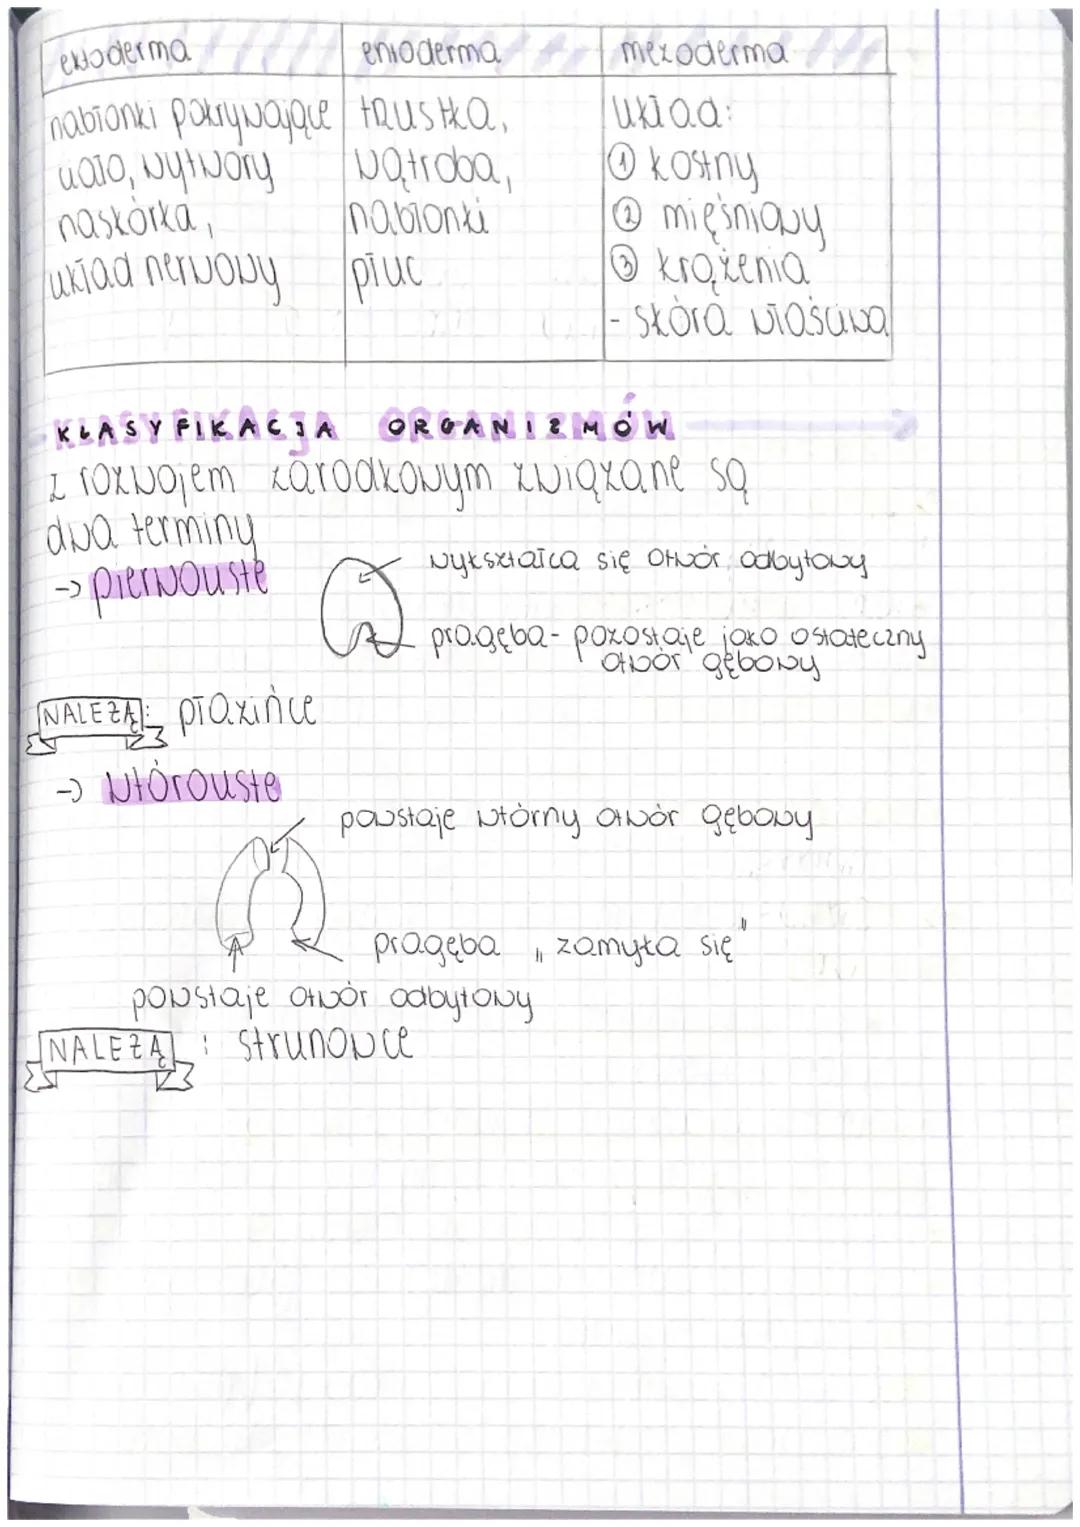 ektoderma entoderma mezoderma
nabłonki pokrywające trzustka, układ:
ciało, wytwory wątroba, ① kostny
naskórka, nabłonki ② mięśniowy
układ nerwowy płuc ③ krążenia
- skóra właściwa
KLASYFIKACJA ORGANIZMÓW
z rozwojem zarodkowym związane są
dwa terminy
-> pierwouste
wykształca się otwór odbytowy
pragęba - pozostaje jako ostateczny
otwór gębowy
NALEŻĄ: płazińce
-> wtórouste
powstaje wtórny otwór gębowy
pragęba „zamyka się"
powstaje otwór odbytowy
NALEŻĄ: strunowce